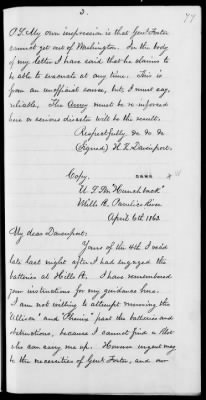 3.
77
P.S. My own impression is that Genl. Foster
cannot get out of Washington. In the body
of my letter I have said that he claims to
be able to evacuate at any time. This is
from an unofficial source, but, I must say,
reliable. The Army must be re-inforced
here or serious disaster will be the result.
Respectfully &c &c &c
(Signed) H. K. Davenport.
Copy.
U. S. Str. "Hunchback"
Hills Pt. Pamlico River
April 6th 1863.
My dear Davenport:
Yours of the 4th I recd
late last night after I had engaged the
batteries at Hills Pt. I have remembered
your instructions for my guidance here.
I am not willing to attempt running the
"Allison" & "Phenix" past the batteries and
obstructions, because I cannot find a Pilot
who can carry me up. However urgent may
be the necessities of Genl. Foster, and our